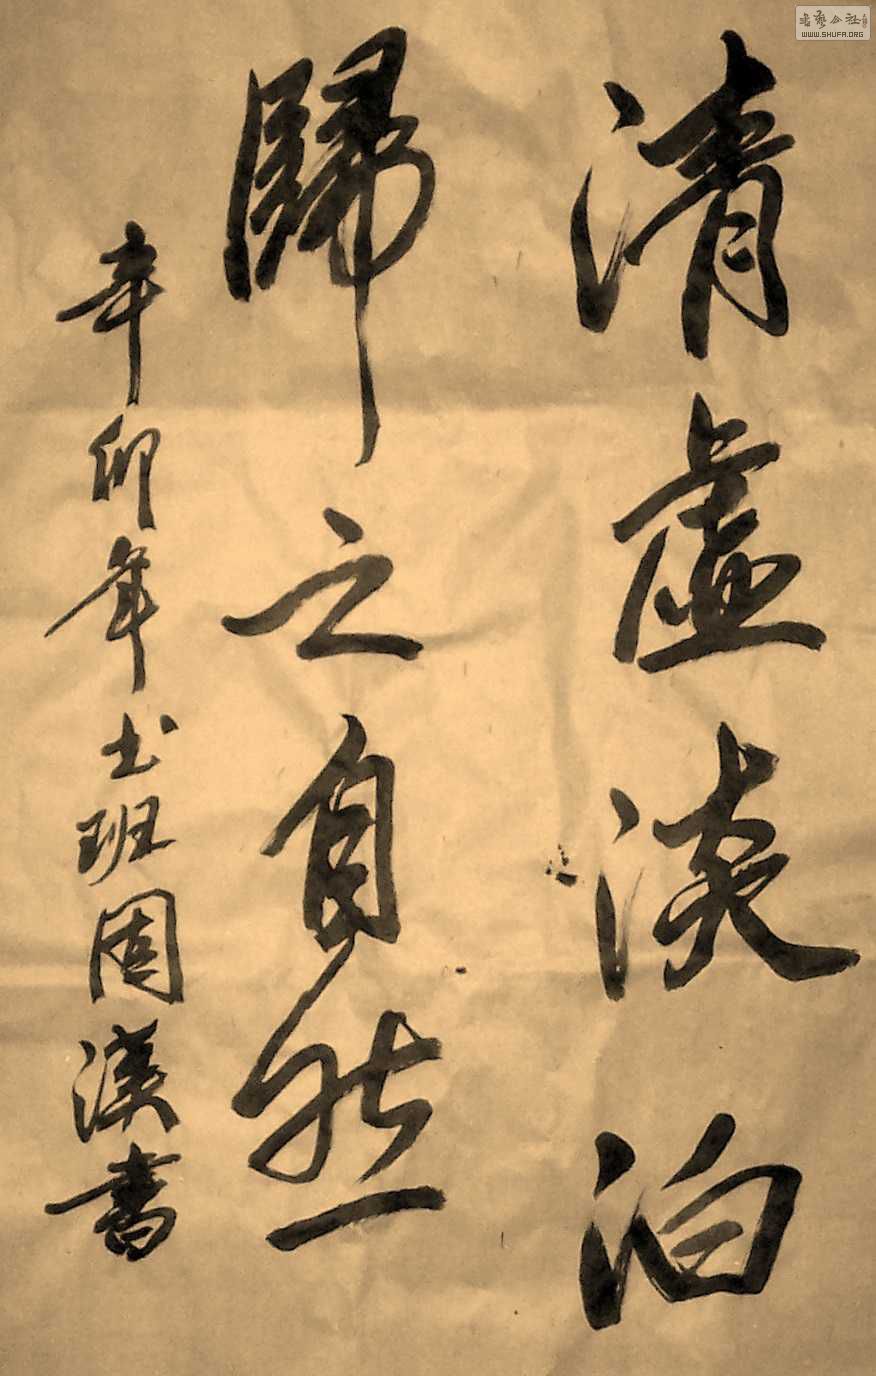 清虚淡泊
歸之自然
辛卯年书班固漢書
書藝公社
WWW.SHUFA.ORG